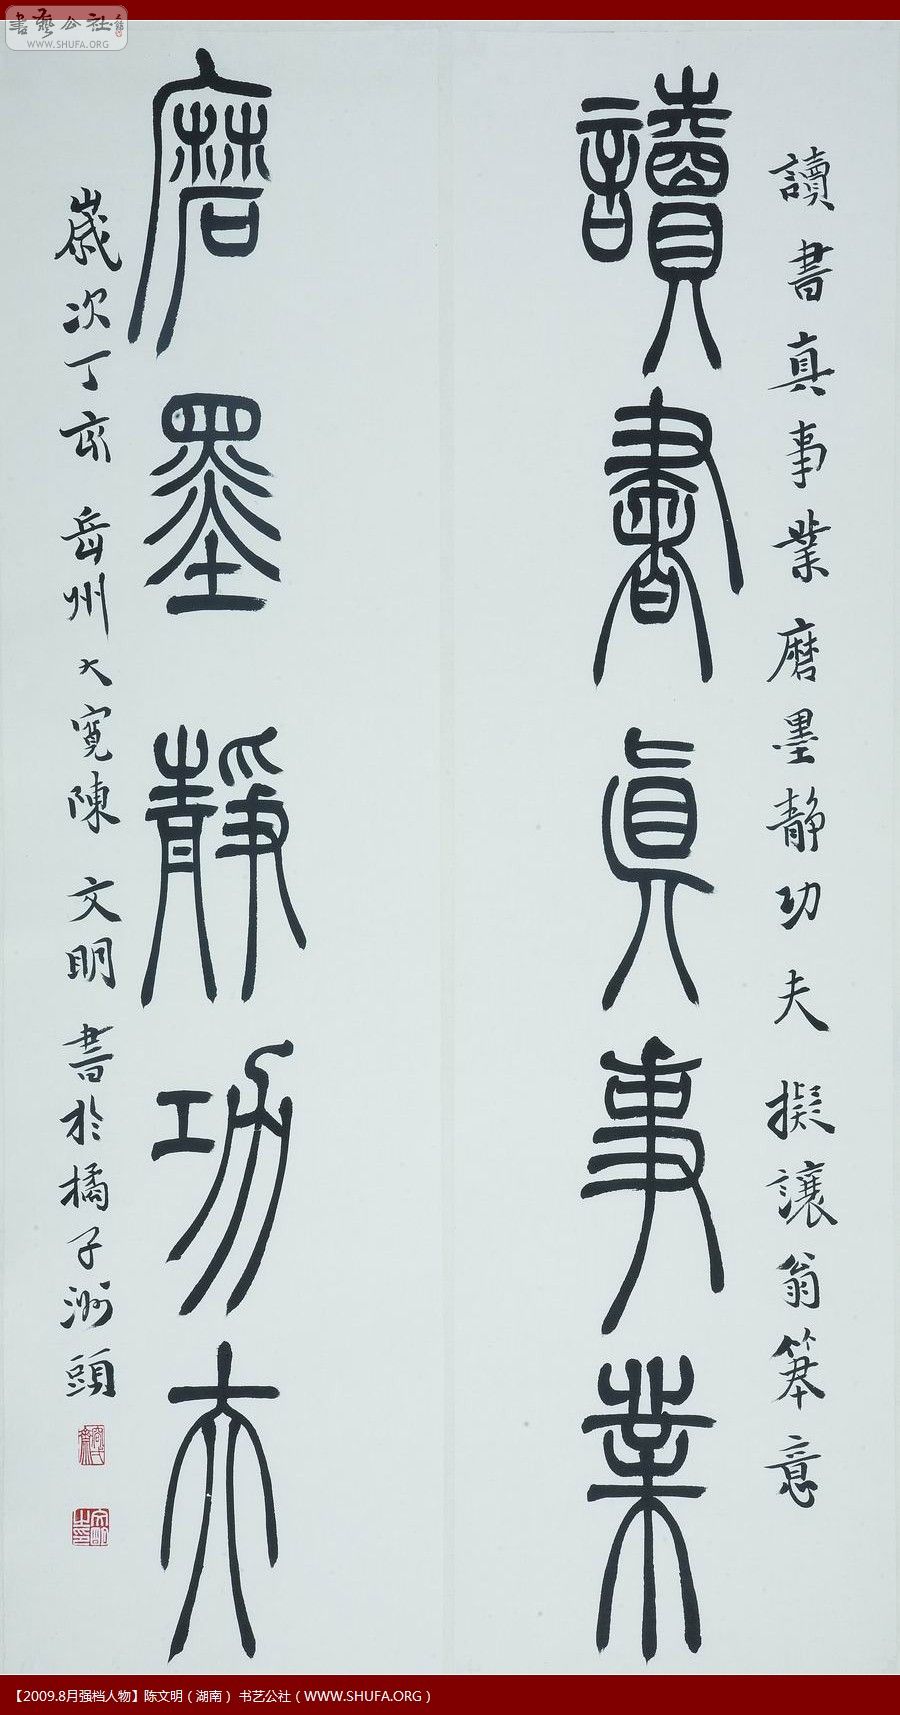 書藝公社
WWW.SHUFA.ORG
讀書真事業磨墨靜功夫擬讓翁筆意
讀書眞事業
磨墨靜功夫
歲次丁亥岳州大寬陳文明書於橘子洲頭
【2009.8月强档人物】陈文明（湖南） 书艺公社（WWW.SHUFA.ORG）